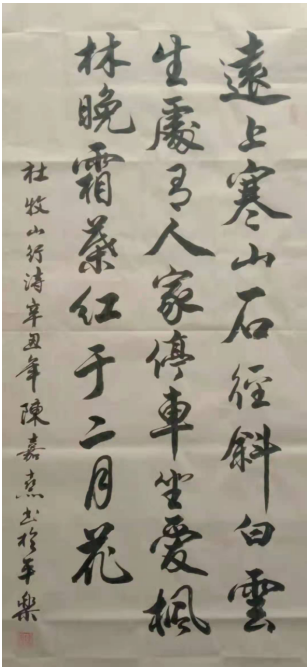 遠上寒山石徑斜白雲
生處有人家停車坐愛楓
林晚霜葉紅于二月花
杜牧山行詩辛丑年陳嘉書於平樂